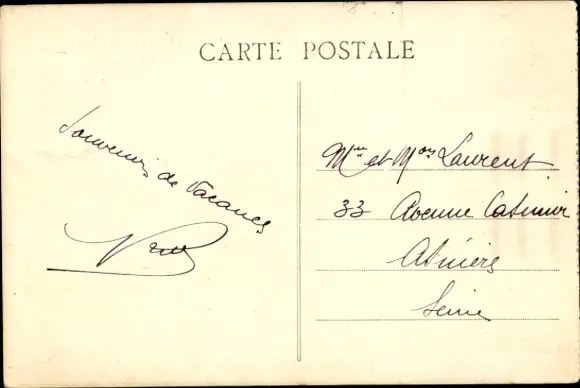 CARTE POSTALE
Souvenir de Vacances
Mme et Mor Laurent
33 Avenue Casimir
Asnières
Seine